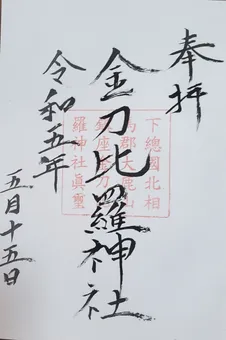 奉拝
金刀比羅神社
下總國北相
馬郡大鹿山
鎮座金刀比
羅神社眞璽
令和五年
五月十五日